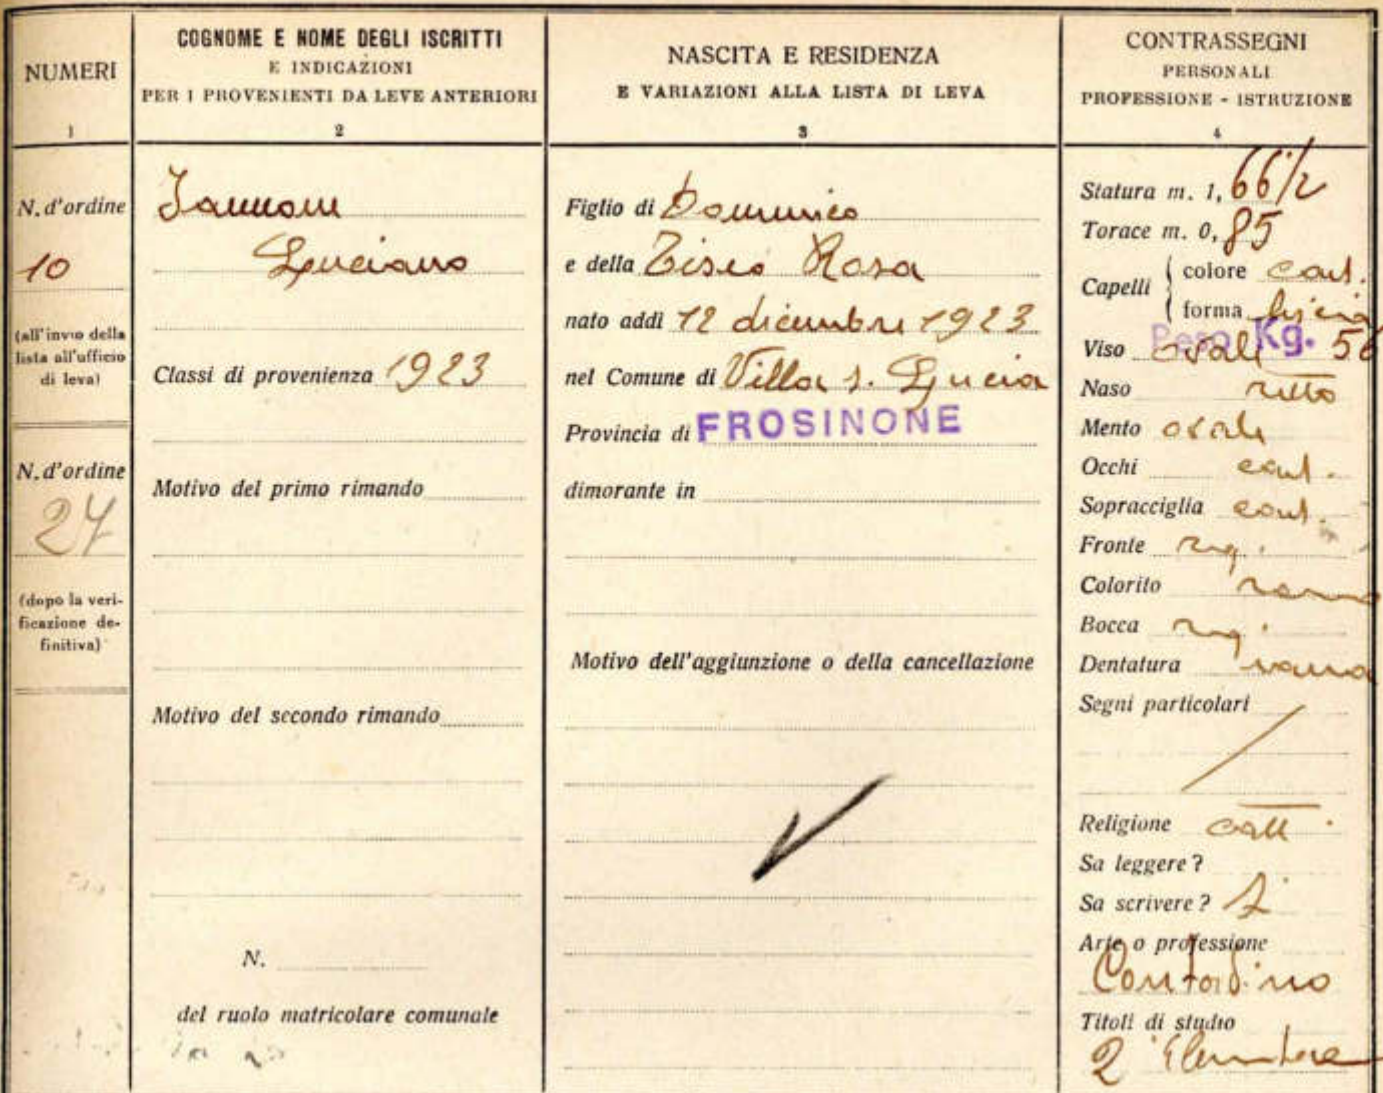 NUMERI
1
N. d'ordine
10
(all'invio della
lista all'ufficio
di leva)
N. d'ordine
27
(dopo la veri-
ficazione de-
finitiva)
COGNOME E NOME DEGLI ISCRITTI
E INDICAZIONI
PER I PROVENIENTI DA LEVE ANTERIORI
2
Iannoni
Luciano
Classi di provenienza 1923
Motivo del primo rimando
Motivo del secondo rimando
N.
del ruolo matricolare comunale
NASCITA E RESIDENZA
E VARIAZIONI ALLA LISTA DI LEVA
3
Figlio di Domenico
e della Tiseo Rosa
nato addì 12 dicembre 1923
nel Comune di Villa S. Lucia
Provincia di FROSINONE
dimorante in
Motivo dell'aggiunzione o della cancellazione
CONTRASSEGNI
PERSONALI
PROFESSIONE - ISTRUZIONE
4
Statura m. 1, 66 1/2
Torace m. 0, 85
Capelli
colore cast.
forma liscia
Peso Kg. 56
Viso ovale
Naso retto
Mento ovale
Occhi cast.
Sopracciglia cast.
Fronte reg.
Colorito roseo
Bocca reg.
Dentatura sana
Segni particolari /
Religione catt.
Sa leggere?
Sa scrivere? Si
Arte o professione
Contadino
Titoli di studio
2ª Elementare